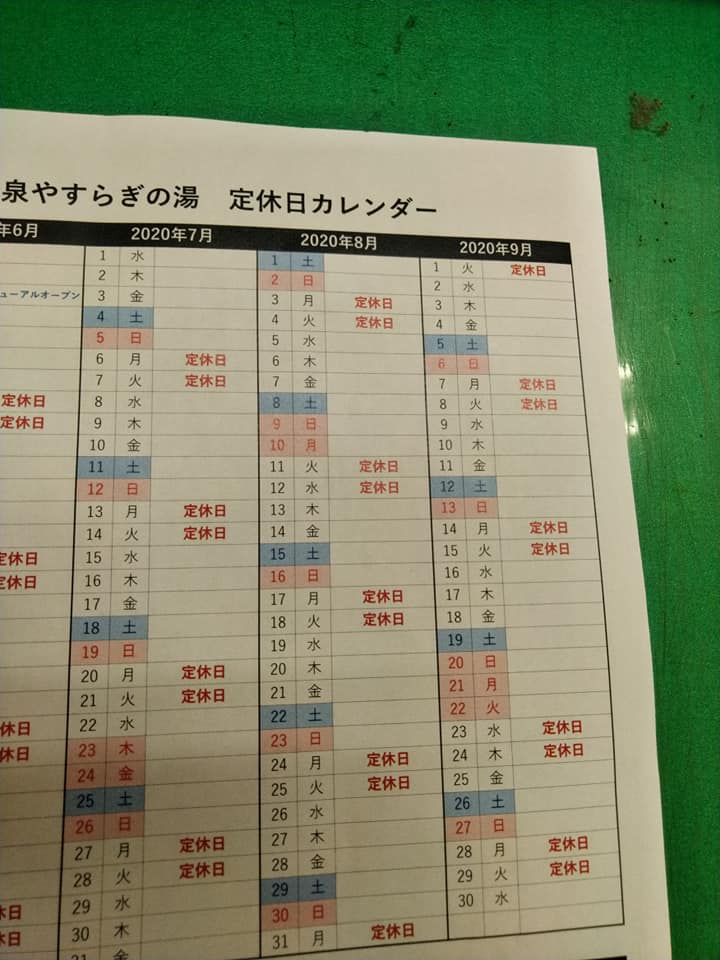 泉やすらぎの湯　定休日カレンダー
年6月
ューアルオープン
定休日
定休日
定休日
定休日
休日
休日
休日
休日
2020年7月
1 水
2 木
3 金
4 土
5 日
6 月 定休日
7 火 定休日
8 水
9 木
10 金
11 土
12 日
13 月 定休日
14 火 定休日
15 水
16 木
17 金
18 土
19 日
20 月 定休日
21 火 定休日
22 水
23 木
24 金
25 土
26 日
27 月 定休日
28 火 定休日
29 水
30 木
31 金
2020年8月
1 土
2 日
3 月 定休日
4 火 定休日
5 水
6 木
7 金
8 土
9 日
10 月
11 火 定休日
12 水 定休日
13 木
14 金
15 土
16 日
17 月 定休日
18 火 定休日
19 水
20 木
21 金
22 土
23 日
24 月 定休日
25 火 定休日
26 水
27 木
28 金
29 土
30 日
31 月 定休日
2020年9月
1 火 定休日
2 水
3 木
4 金
5 土
6 日
7 月 定休日
8 火 定休日
9 水
10 木
11 金
12 土
13 日
14 月 定休日
15 火 定休日
16 水
17 木
18 金
19 土
20 日
21 月
22 火
23 水 定休日
24 木 定休日
25 金
26 土
27 日
28 月 定休日
29 火 定休日
30 水